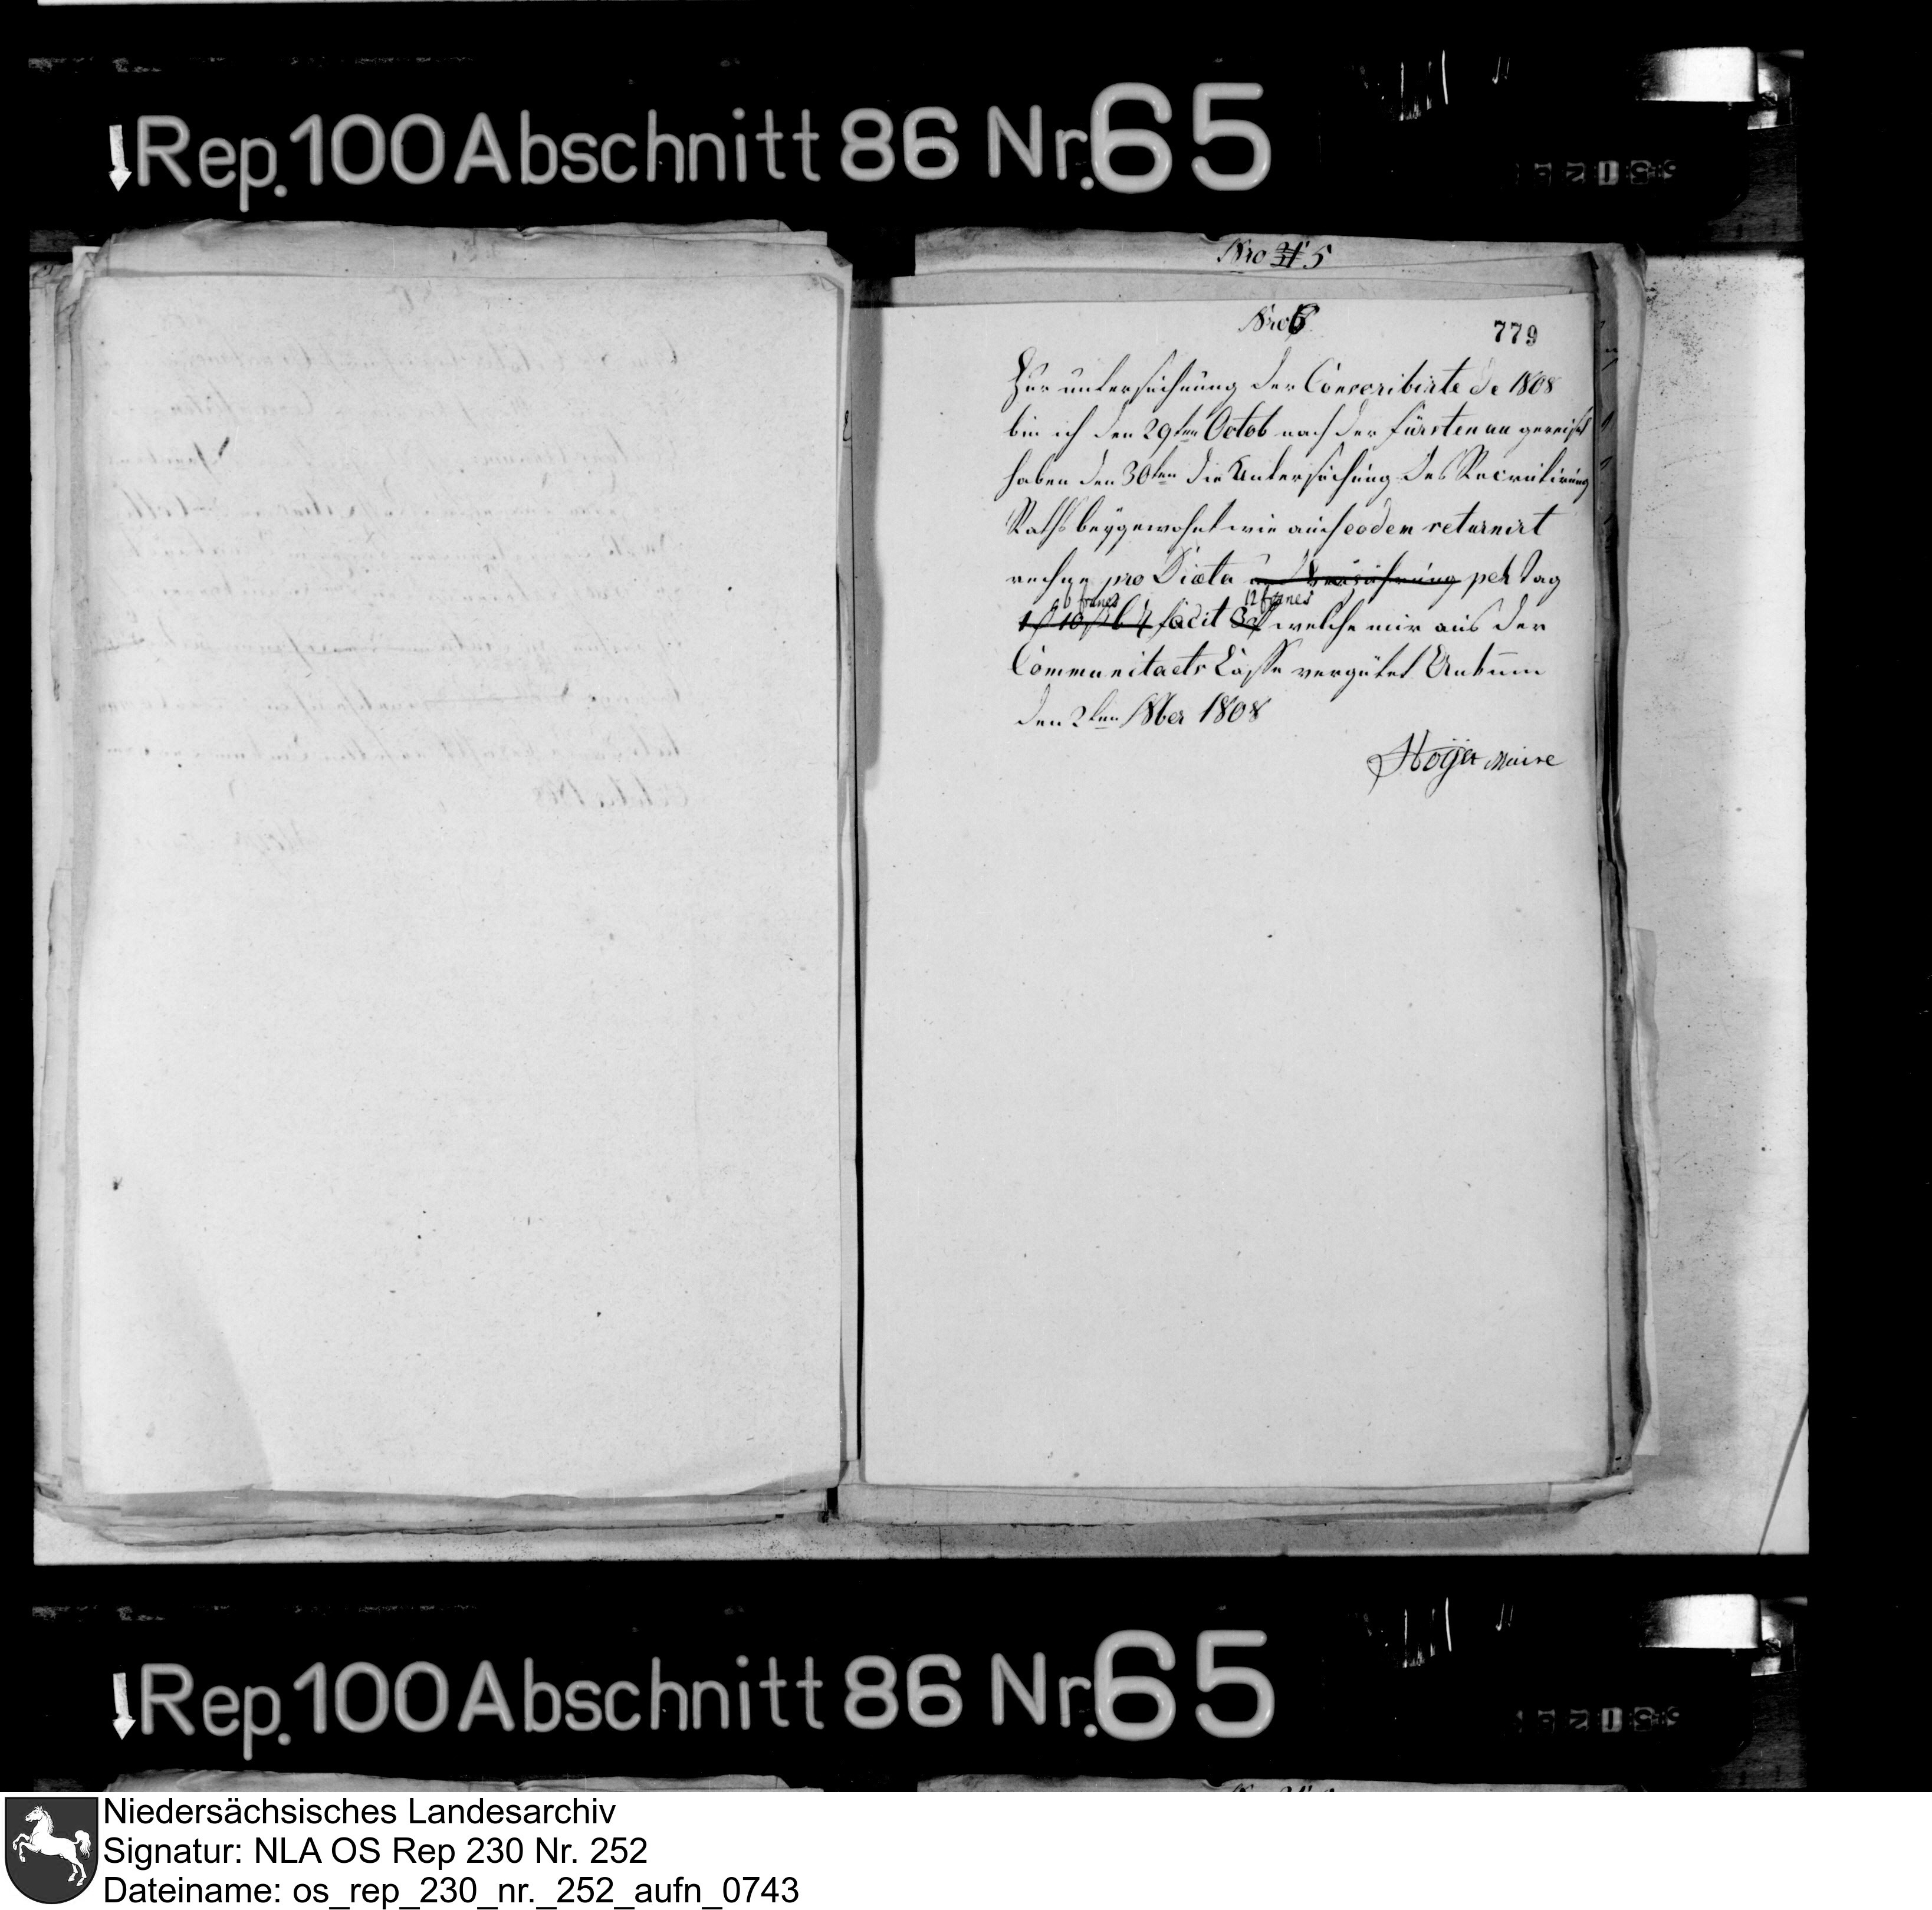 Rep. 100 Abschnitt 86 Nr. 65
Nro 5
Nro 6
779
Zur untersuchung der Conscribirte de 1808
bin ich den 29ten Octob nach der fürstenau gereist
haben den 30ten die Untersuchung des Recrutirung
Raths beygewohnt wie auch eodem returnirt
rechne pro Diæta per Tag
6 francs 12 francs
facit welche mir aus der
Communitaets Casse vergütet Ankum
den 2ten 9ber 1808
Hoÿer Maire
Rep. 100 Abschnitt 86 Nr. 65
Niedersächsisches Landesarchiv
Signatur: NLA OS Rep 230 Nr. 252
Dateiname: os_rep_230_nr._252_aufn_0743